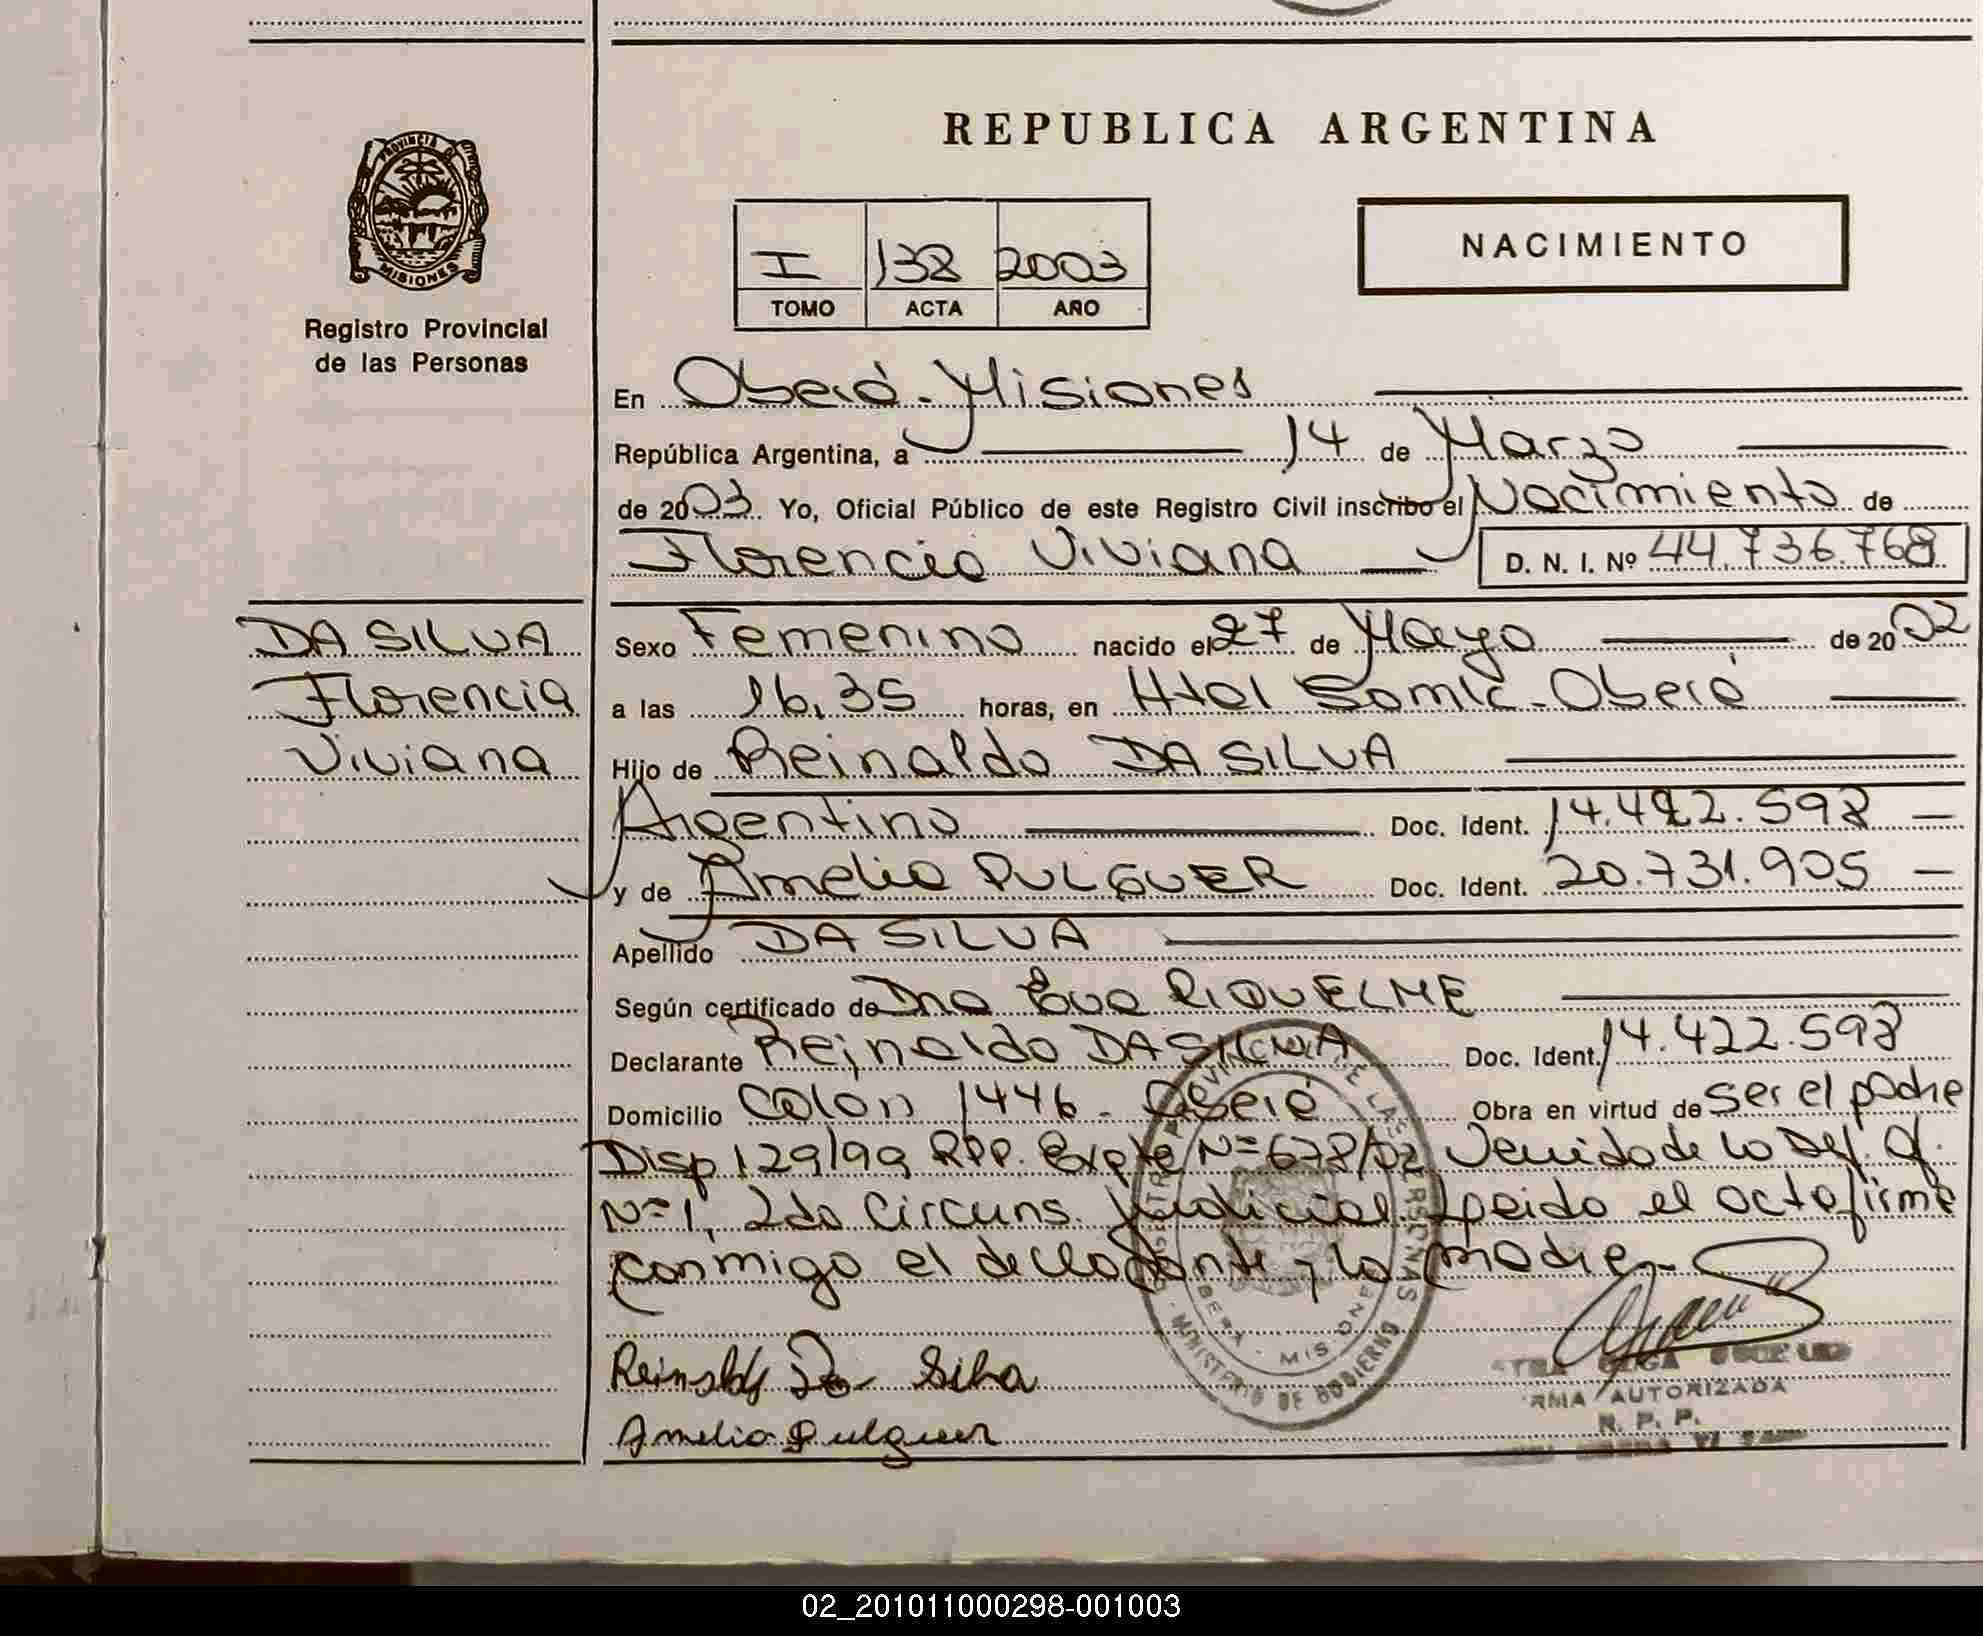 REPUBLICA ARGENTINA
PROVINCIA D MISIONES
Registro Provincial
de las Personas
I 138 2003
TOMO ACTA AÑO
NACIMIENTO
En Oberá - Misiones
República Argentina, a 14 de Marzo
de 2003. Yo, Oficial Público de este Registro Civil inscribo el Nacimiento de
Florencia Viviana D. N. I. Nº 44.736.768
DA SILVA
Florencia
Viviana
Sexo Femenino nacido el 27 de Mayo de 2002
a las 16,35 horas, en Htal Samic - Oberá
Hijo de Reinaldo DA SILVA
Argentino Doc. Ident. 14.422.598
y de Amelia PULGUER Doc. Ident. 20.731.905
Apellido DA SILVA
Según certificado de Dra Eva RIQUELME
Declarante Reinaldo DA SILVA Doc. Ident. 14.422.598
Domicilio Colón 1446 - Oberá Obra en virtud de ser el padre
Disp 129/99 RPP. Expte N=678/02 Venida de la Def. Of.
N=1, 2da Circuns. Judicial Leida el acta firma
conmigo el declarante y la madre
Reinaldo Da Silva
Amelia Pulguer
MINISTERIO DE GOBIERNO
OLGA
AUTORIZADA
R. P. P.
02_201011000298-001003